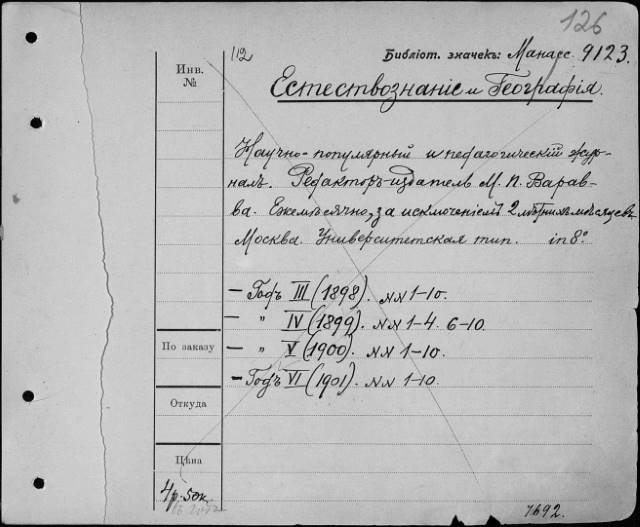 126
112
Библіот. значекъ: Манасс 9123.
Инв. №
Естествознаніе и Географія.
Научно-популярный и педагогическій жур-
налъ. Редакторъ-издатель М. П. Варав-
ва. Ежемѣсячно, за исключеніемъ 2 лѣтнихъ мѣсяцевъ
Москва. Университетская тип. in 8°
— Годъ III (1898). №№ 1-10.
— " IV (1899). №№ 1-4. 6-10.
По заказу
— " V (1900). №№ 1-10.
— Годъ VI (1901). №№ 1-10.
Откуда
Цѣна
4р. 50к.
1692.